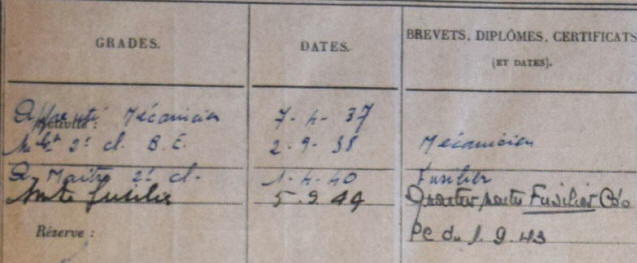 GRADES. DATES. BREVETS, DIPLÔMES, CERTIFICATS
(ET DATES).
Activité :
Apprenti Mécanicien 7-4-37
Mot 2e cl. B.E. 2-9-38 Mécanicien
Q Maître 2e cl. 1-4-40 Fusilier
fusilier 5.9.49 Quartier maitre Fusilier Cdo
Réserve : PC du 1.9.43